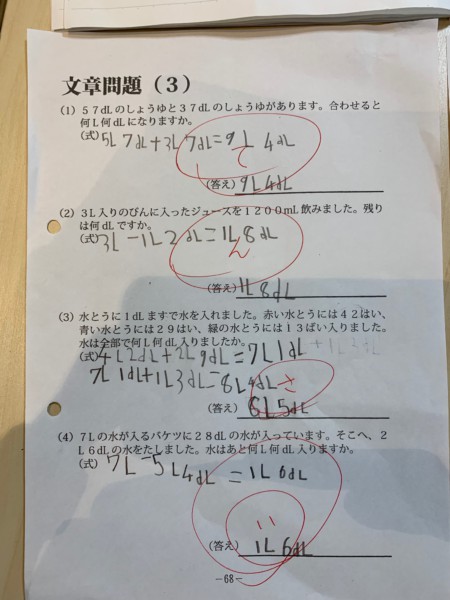 文章問題（３）
（1）５７dLのしょうゆと３７dLのしょうゆがあります。合わせると
何L何dLになりますか。
（式）5L 7dL+3L 7dL=9L 4dL
て
（答え）9L4dL
（2）３L入りのびんに入ったジュースを１２００mL飲みました。残り
は何dLですか。
（式）3L-1L2dL=1L8dL
ん
（答え）1L8dL
（3）水とうに１dLますで水を入れました。赤い水とうには４２はい、
青い水とうには２９はい、緑の水とうには１３ばい入りました。
水は全部で何L何dL入りましたか。
（式）4L2dL+2L9dL=7L1dL+1L3dL
7L1dL+1L3dL=8L4dL
さ
（答え）8L5dL
（4）７Lの水が入るバケツに２８dLの水が入っています。そこへ、２
L６dLの水をたしました。水はあと何L何dL入りますか。
（式）7L-5L4dL=1L6dL
い
（答え）1L6dL
－68－